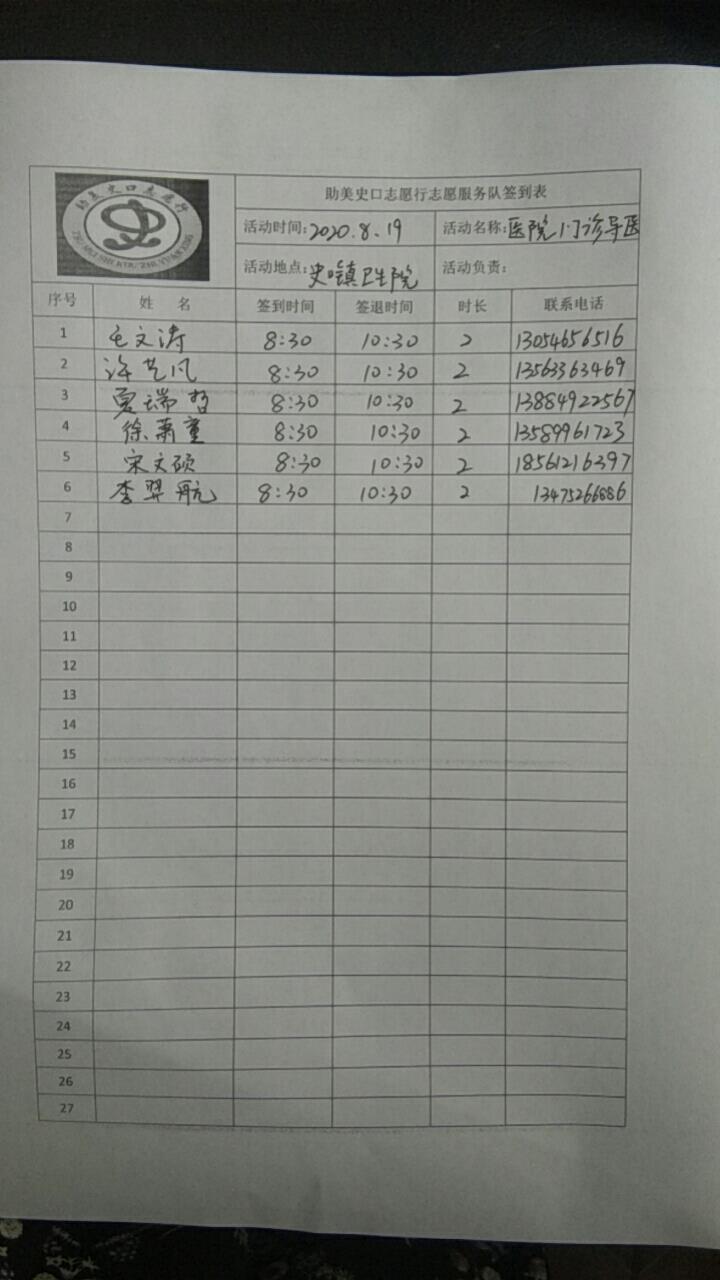 助美史口志愿行
ZHU MEI SHI KOU ZHI YUAN XING
助美史口志愿行志愿服务队签到表
活动时间:2020.8.19 活动名称:医院门诊导医
活动地点:史口镇卫生院 活动负责:
序号 姓 名 签到时间 签退时间 时长 联系电话
1 毛文涛 8:30 10:30 2 13054656516
2 许艺凡 8:30 10:30 2 13563363469
3 夏瑞哲 8:30 10:30 2 13884922567
4 徐萧童 8:30 10:30 2 13589961723
5 宋文硕 8:30 10:30 2 18561216397
6 李羿航 8:30 10:30 2 13475266886
7
8
9
10
11
12
13
14
15
16
17
18
19
20
21
22
23
24
25
26
27